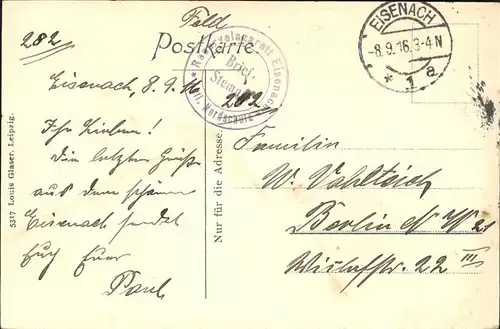 282
Feld
Postkarte
Reservelazarett Eisenach
Brief-
Stempel
II. Nordschule
202
EISENACH
-8.9.16.3-4N
* 1 a
Eisenach, 8.9.16
Ihr Lieben!
Die letzten Grüße
aus dem schönen
Eisenach sendet
Euch Euer
Paul
Familie
W. Vahlteich
Berlin N.W. 21
Wiclefstr. 22 III
Nur für die Adresse.
5317 Louis Glaser, Leipzig.